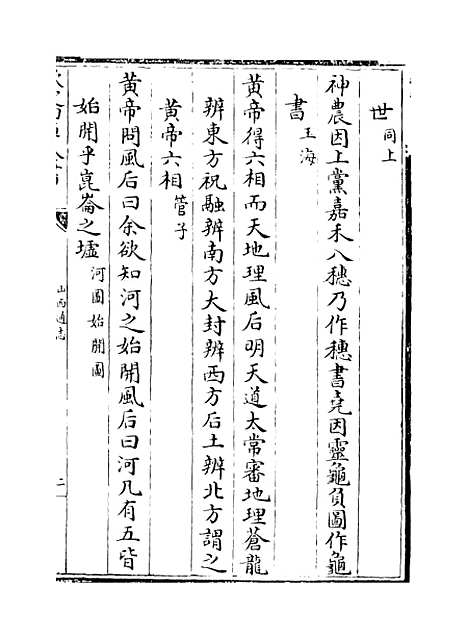 世同上
神農因上黨嘉禾八穗乃作穗書堯因靈龜負圖作龜
書玉海
黃帝得六相而天地理風后明天道太常審地理蒼龍
辨東方祝融辨南方大封辨西方后土辨北方謂之
黃帝六相管子
黃帝問風后曰余欲知河之始開風后曰河凡有五皆
始開乎崑崙之墟河圖始開圖
山西通志
二